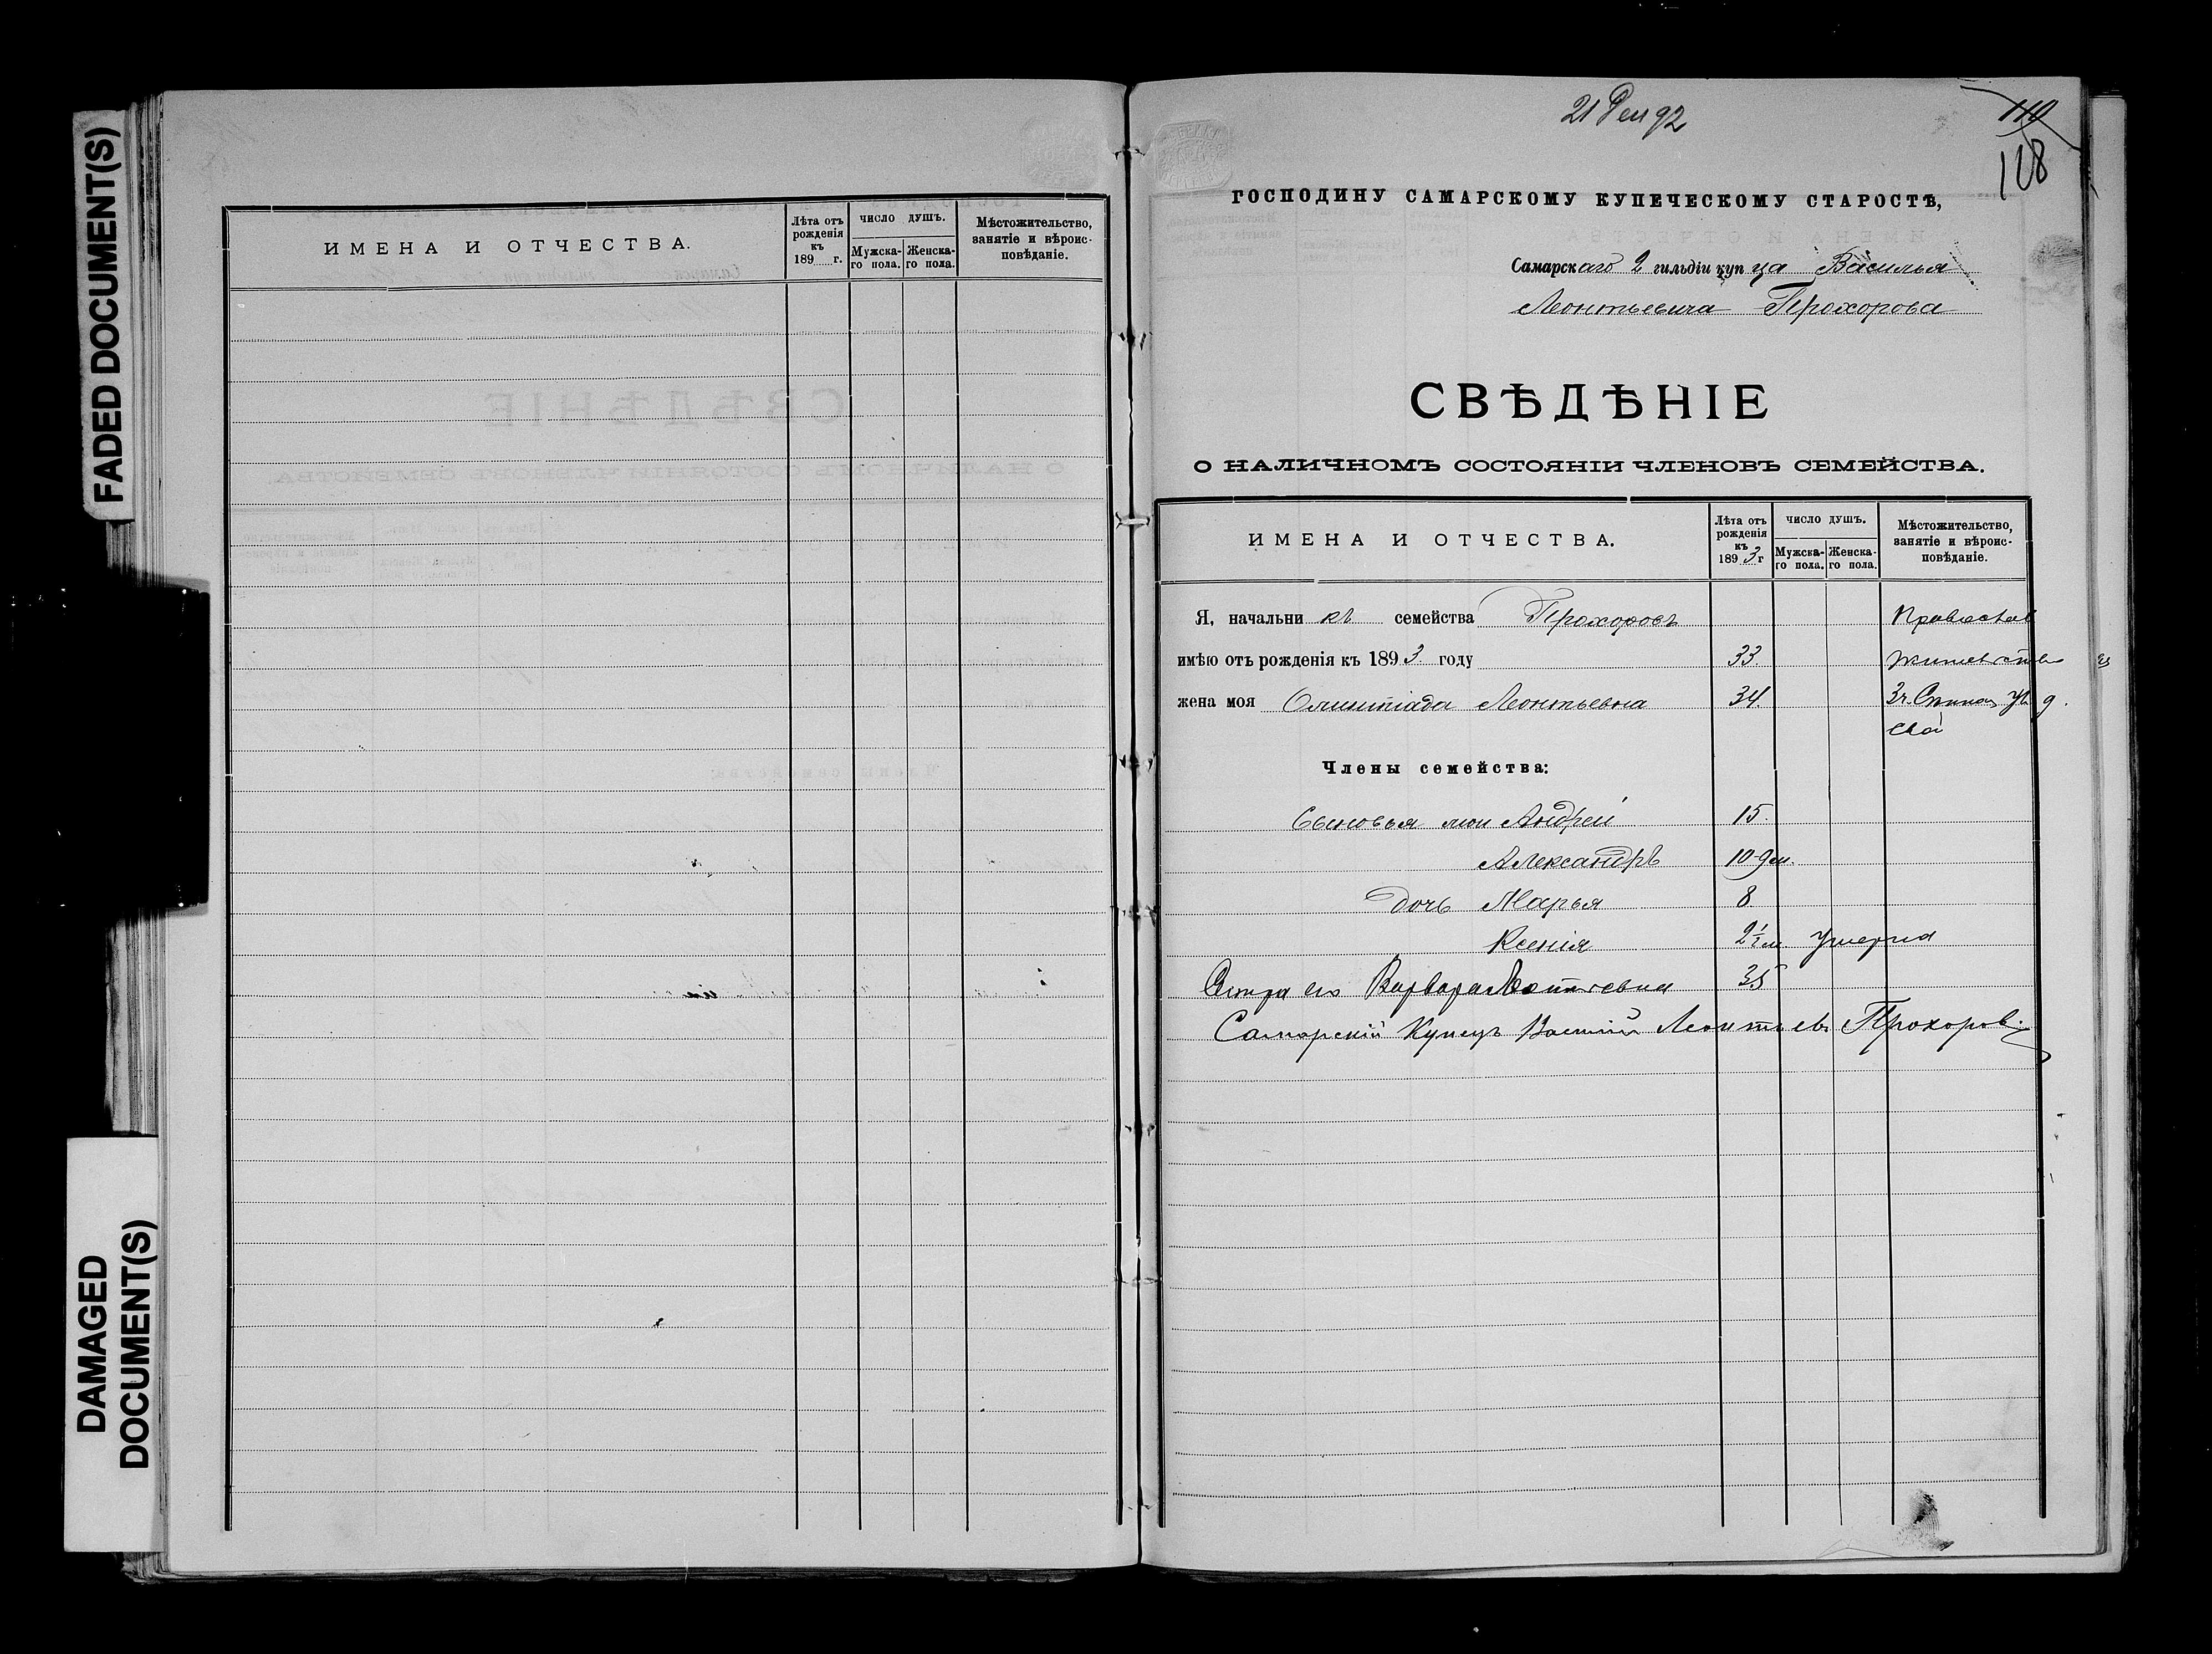 FADED DOCUMENT(S)
DAMAGED
DOCUMENT(S)
ИМЕНА И ОТЧЕСТВА.
Лѣта отъ рожденія къ 189 г.
ЧИСЛО ДУШЪ.
Мужска-го пола.
Женска-го пола.
Мѣстожительство, занятіе и вѣроис-повѣданіе.
21 Дек 92
110
118
ГОСПОДИНУ САМАРСКОМУ КУПЕЧЕСКОМУ СТАРОСТѢ,
Самарскаго 2 гильдіи купца Василья
Леонтьевича Прохорова
СВѢДѢНІЕ
О НАЛИЧНОМЪ СОСТОЯНІИ ЧЛЕНОВЪ СЕМЕЙСТВА.
ИМЕНА И ОТЧЕСТВА.
Лѣта отъ рожденія къ 1893 г
ЧИСЛО ДУШЪ.
Мужска-го пола.
Женска-го пола.
Мѣстожительство, занятіе и вѣроис-повѣданіе.
Я, начальникъ семейства Прохоровъ Православ
имѣю отъ рожденія къ 1893 году 33
жена моя Олимпіада Леонтьевна 34.
Члены семейства:
Сыновья мои Андрей 15.
Александръ 10-9 м.
Дочь Марья 8
Ксенія 2 1/2 м умерла
Сестра его Варвара Леонтьевна 35
Самарскій Купецъ Василий Леонтьевъ Прохоров.